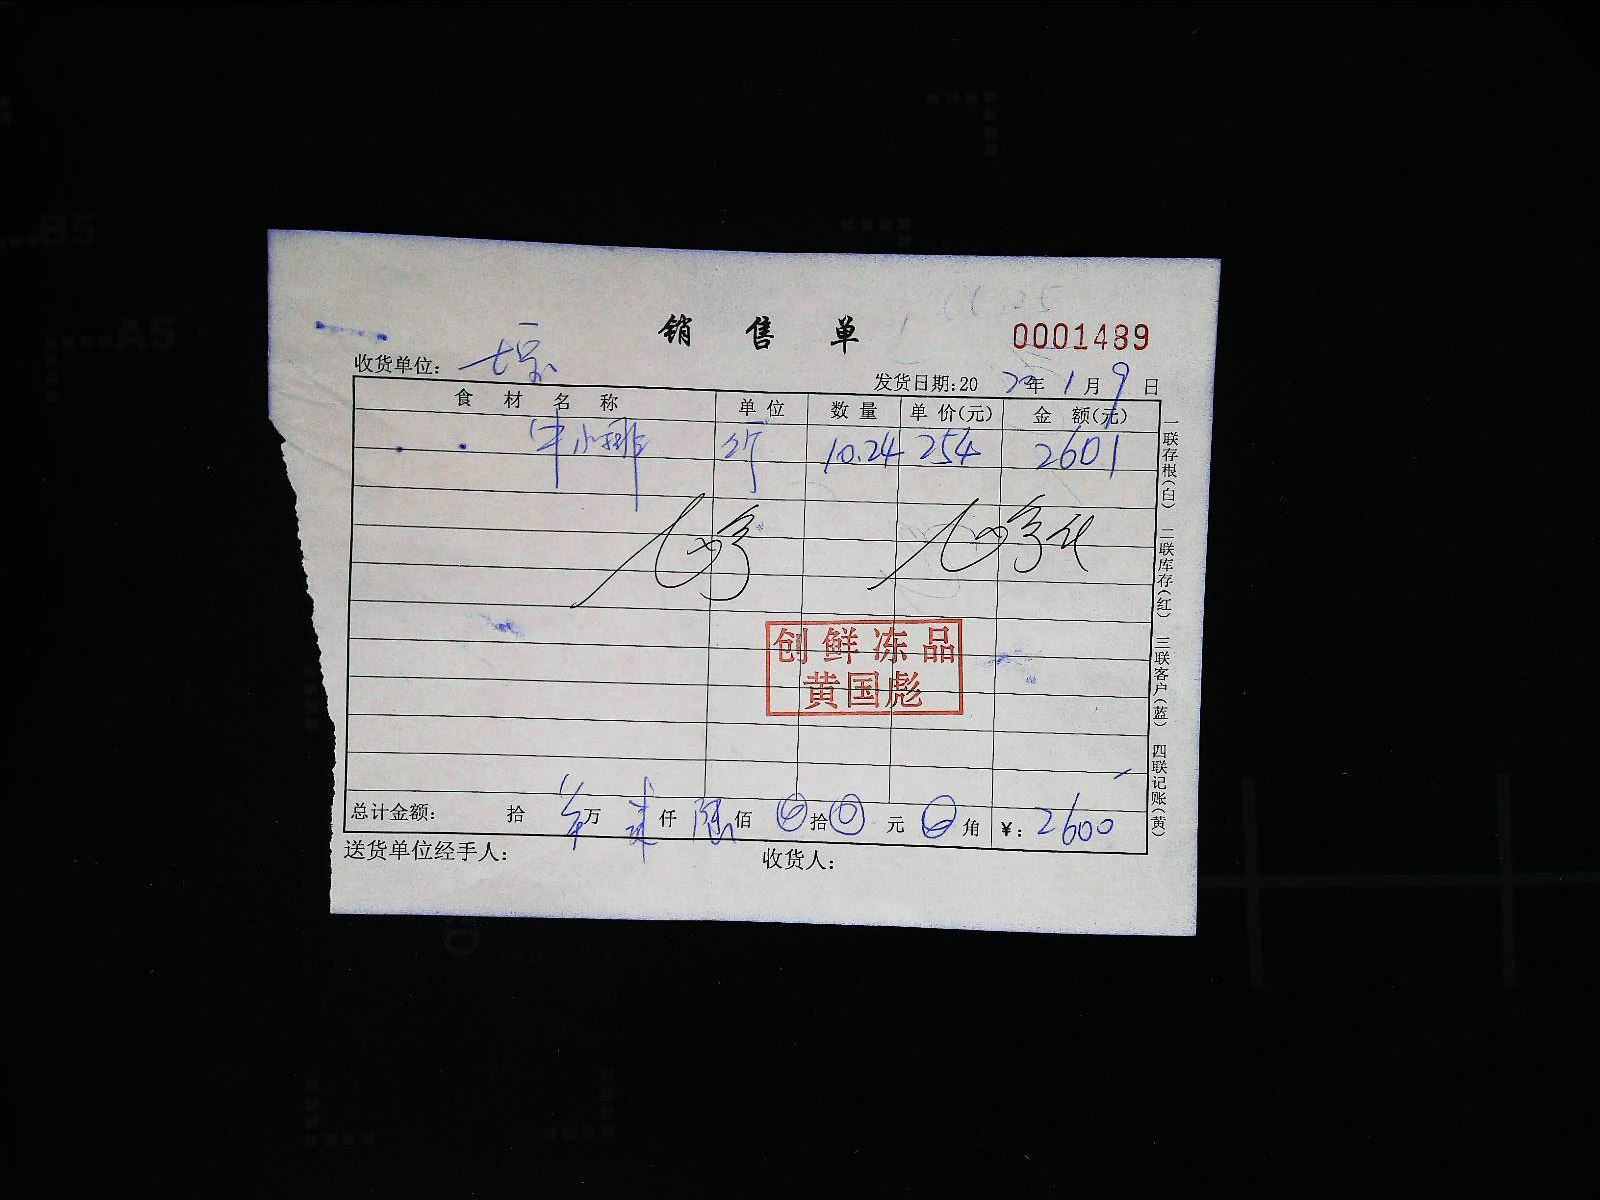 销售单
0001489
收货单位: 七宗
发货日期:20 20年 1月 9日
食材名称 单位 数量 单价(元) 金额(元)
牛小排 斤 10.24 254 2601
创鲜冻品
黄国彪
总计金额: 拾 万 仟 陆佰 0拾 0元 0角 ¥: 2600
送货单位经手人: 收货人:
一联存根(白) 二联库存(红) 三联客户(蓝) 四联记账(黄)
B5
A5